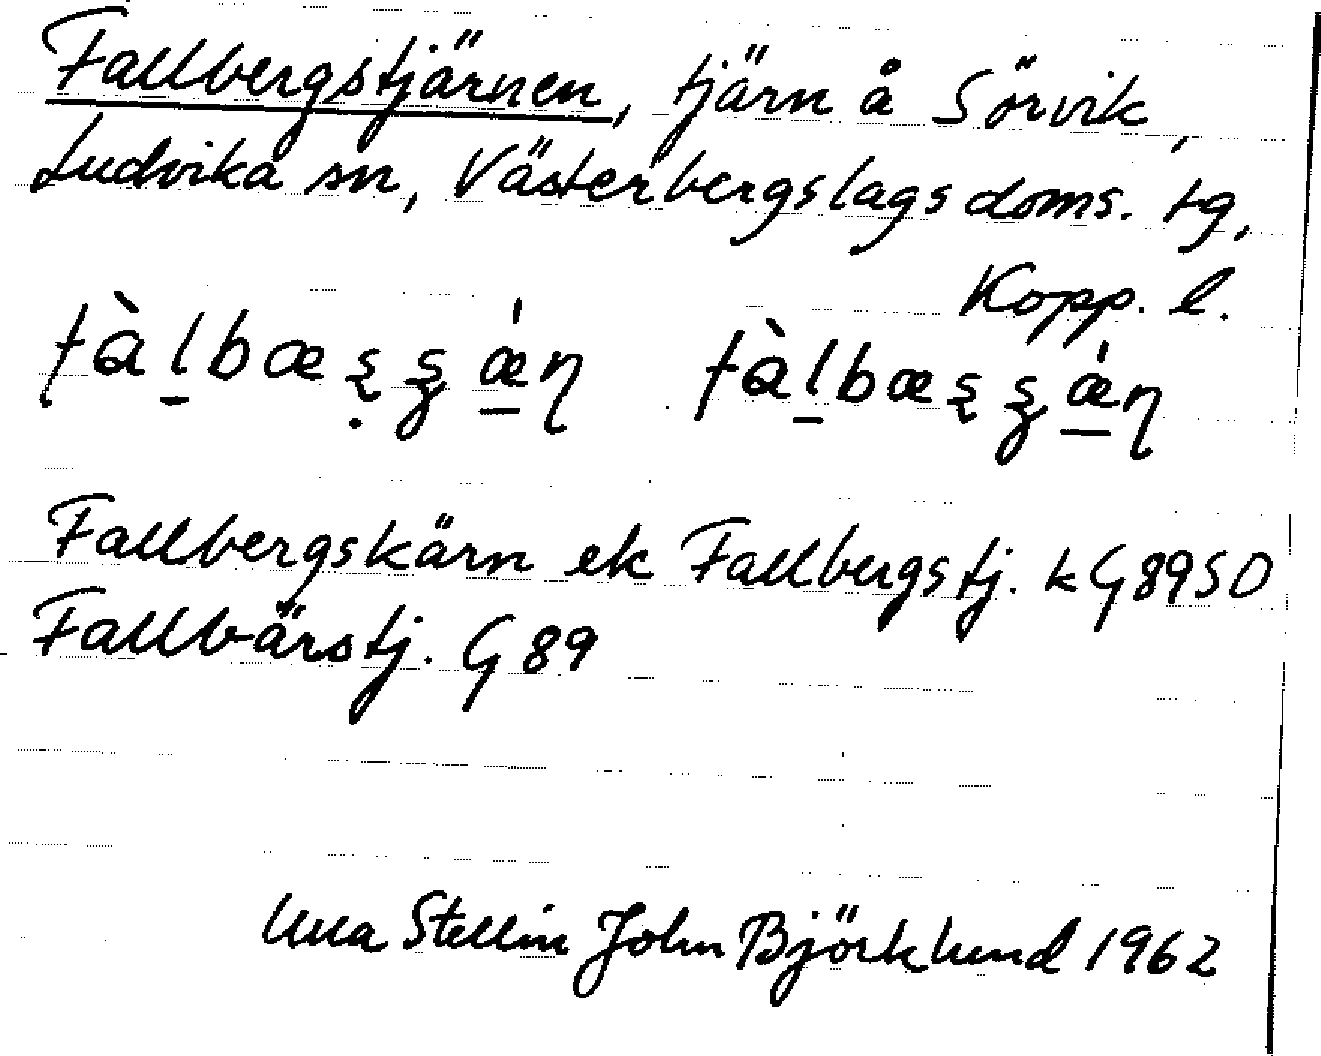 Fallbergstjärnen, tjärn å Sörvik,
Ludvika sn, Västerbergslags doms. tg,
Kopp. l.
Fallbergskärn ek Fallbergstj. k G8950
Fallbärstj. G 89
Ulla Stellin John Björklund 1962